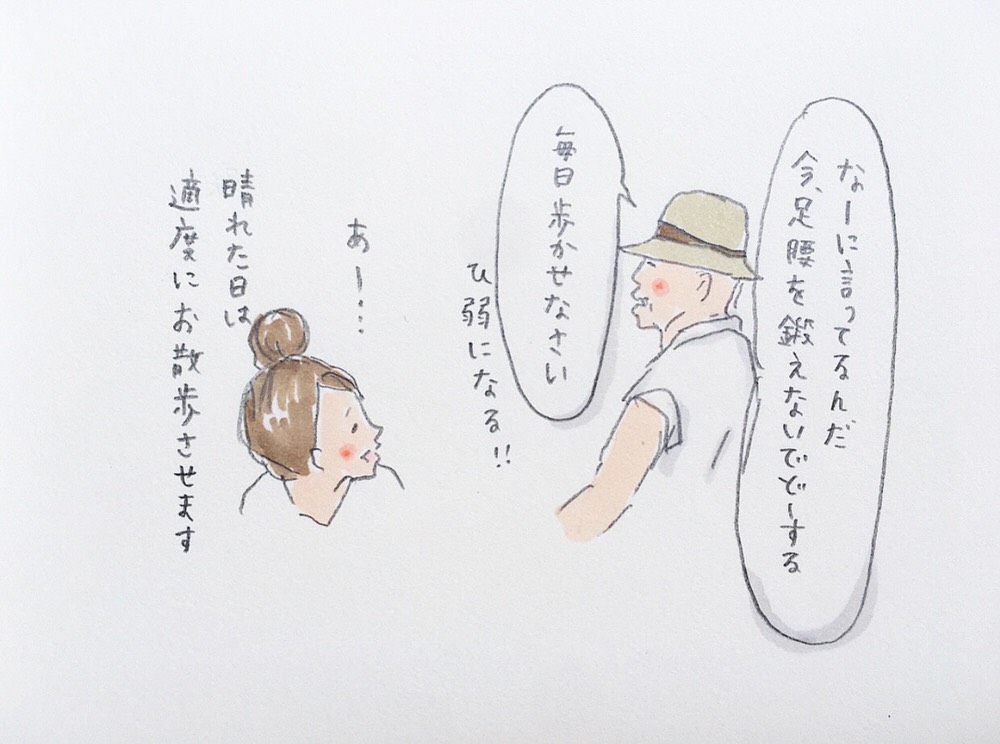 なーに言ってるんだ
今、足腰を鍛えないでどーする
毎日歩かせなさい
ひ弱になる!!
あー…
晴れた日は
適度にお散歩させます